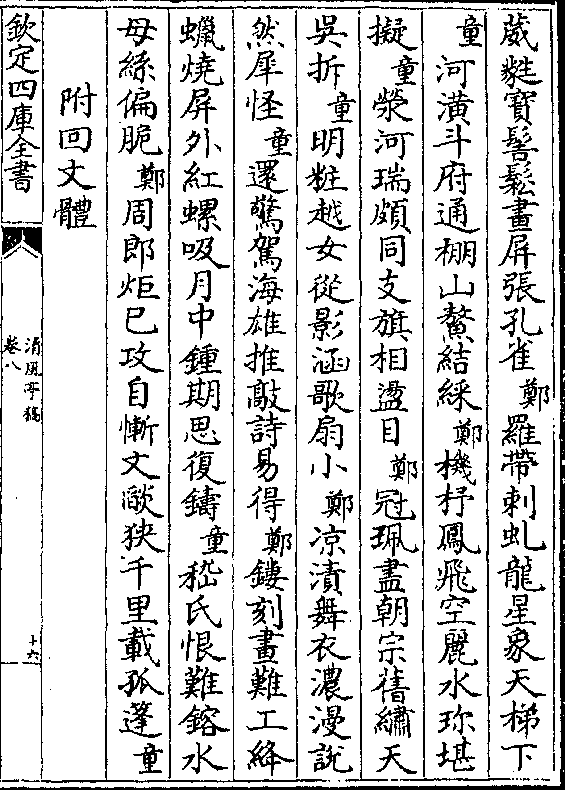 葳㽔寳髻鬆畫屏張孔雀鄭羅帶刺虬龍星象天梯下
童河潢斗府通棚山鰲結綵鄭機杼鳳飛空麗水珎堪
擬童滎河瑞頗同支旗相盪目鄭冠珮盡朝宗舊繡天
吳拆童明粧越女從影涵歌扇小鄭凉漬舞衣濃漫說
然犀怪童還驚駕海雄推敲詩易得鄭鏤刻畫難工絳
蠟燒屏外紅螺吸月中鍾期思復鑄童嵇氏恨難鎔水
母絲偏脆鄭周郎炬已攻自慚文陣狹千里載孤蓬童
附回文體
欽定四庫全書
清風亭稿
卷八
十六